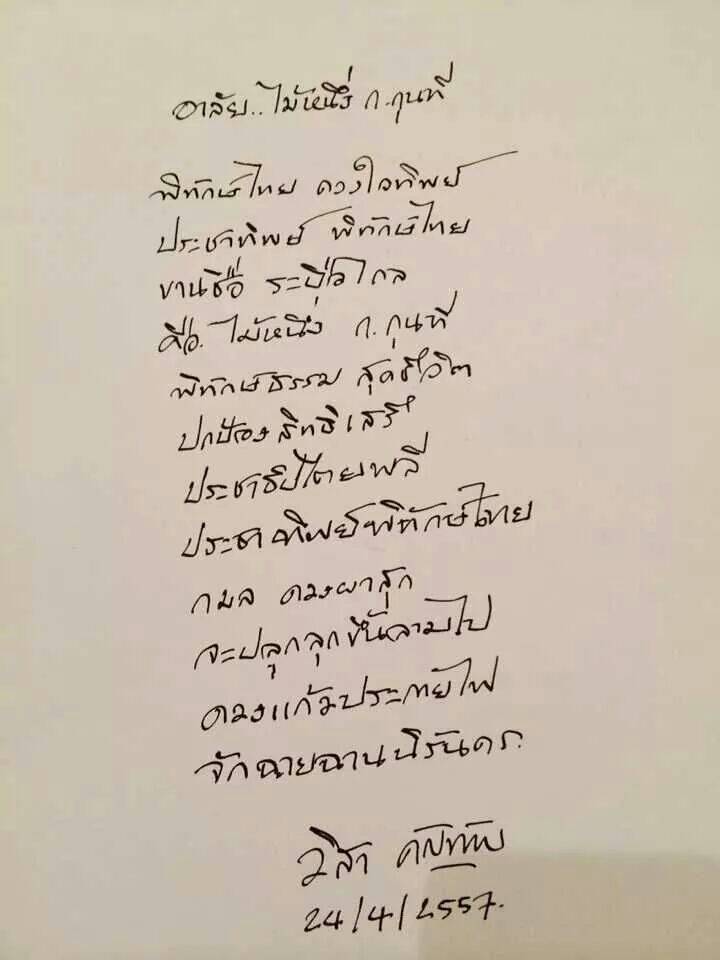 อาลัย..ไม้หนึ่ง ก.กุนที
พิทักษ์ไทย ดวงใจทิพย์
ประชาทิพย์ พิทักษ์ไทย
ขานชื่อ ระบือไกล
คือ ไม้หนึ่ง ก.กุนที
พิทักษ์ธรรม สุดชีวิต
ปกป้องสิทธิเสรี
ประชาธิปไตยพลี
ประชาทิพย์พิทักษ์ไทย
กมล ดวงผาสุก
จะปลุกลุกขึ้นลามไป
ดวงแก้วประกายไฟ
จักฉายฉานนิรันดร
วิสา คัญทัพ
24/4/2557.